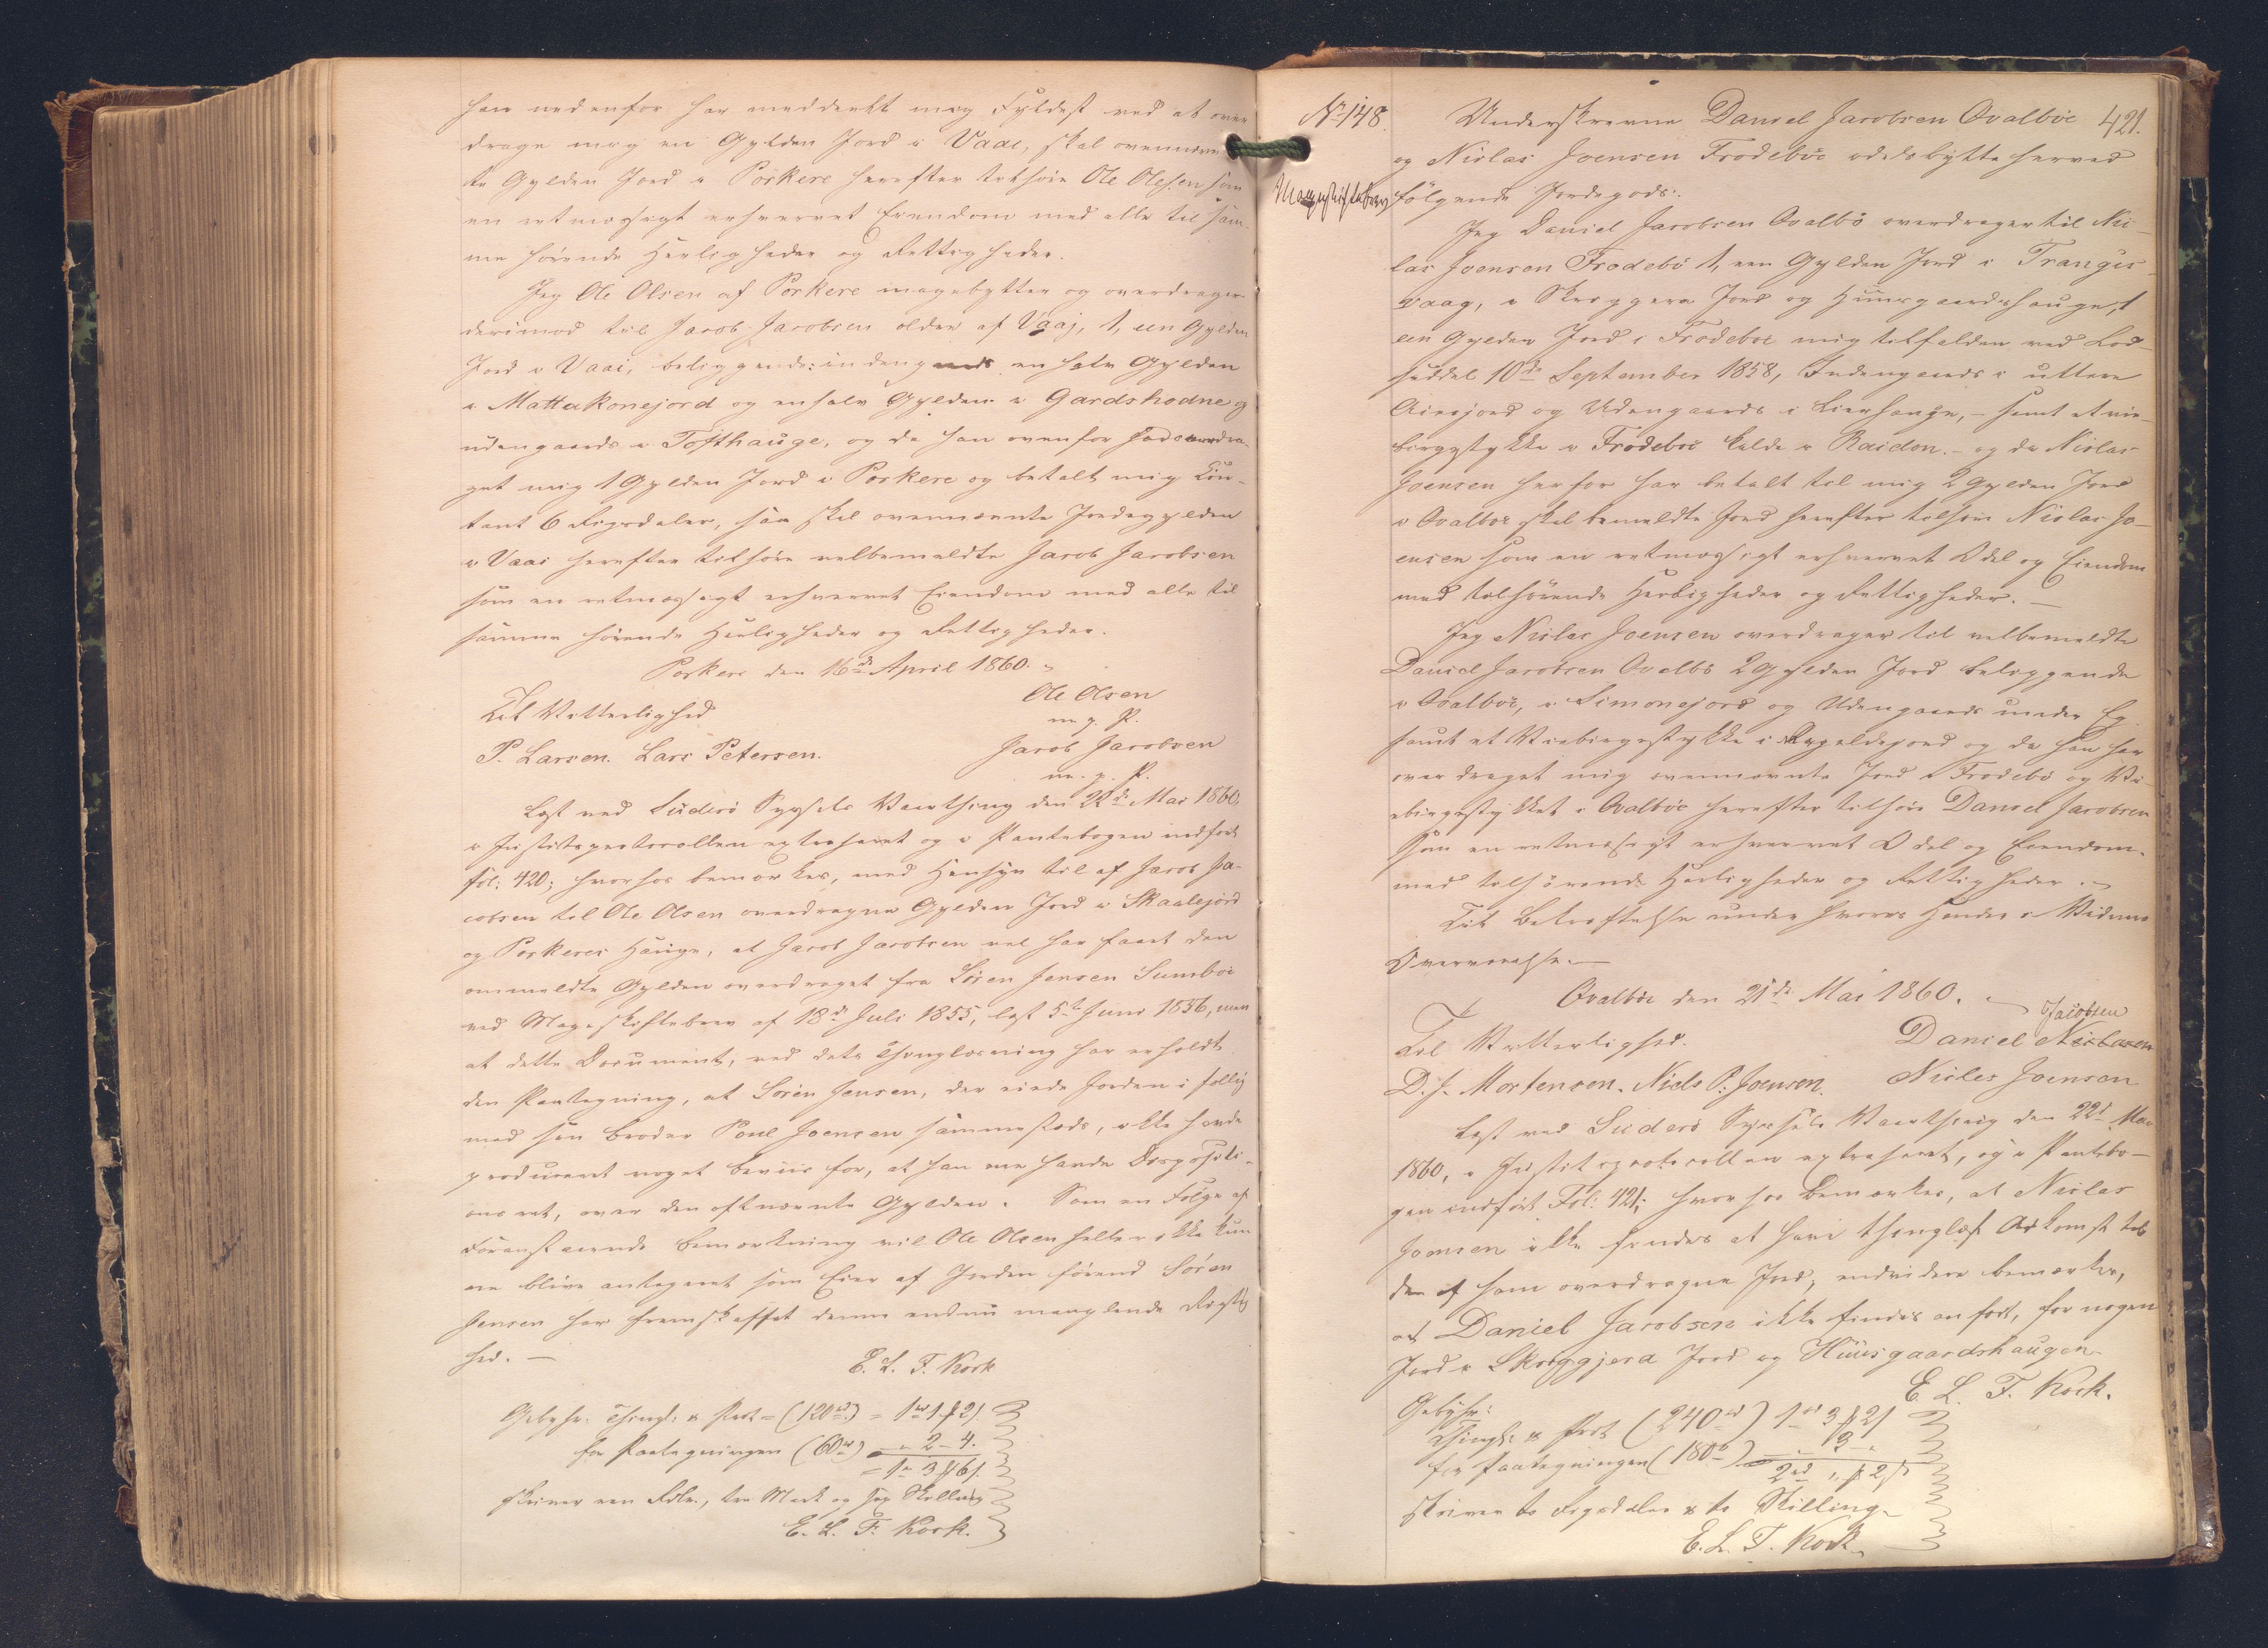 han nedenfor har meddeelt mig Fyldest ved at over
drage mig en Gylden Jord i Vaai, skal ovennævn
te Gylden Jord i Porkere herefter tilhøre Ole Olesen som
en retmæssigt erhvervet Eiendom med alle til sam-
me hørende Herligheder og Rettigheder.
Jeg Ole Olsen af Porkere magebytter og overdrager
derimod til Jacob Jacobsen ældre af Vaaj, 1, een Gylden
Jord i Vaai, beliggende: indengaards en halv Gylden
i Mattakonejord og en halv Gylden i Gardshodne og
udengaards i Tofthauge, og da han ovenfor har overdra-
get mig 1 Gylden Jord i Porkere og betalt mig Con-
tant 6 Rigsdaler, saa skal ovennævnte Jordegylden
i Vaai herefter tilhøre velbemeldte Jacob Jacobsen
som en retmæssigt erhvervet Eiendom med alle til
samme hørende Herligheder og Rettigheder.
Porkere den 16de April 1860.
Til Vitterlighed Ole Olsen
m. p. P.
P. Larsen. Lars Petersen. Jacob Jacobsen
m. p. P.
Læst ved Suderø Syssels Vaarthing den 22de Mai 1860,
i Justitsprotocollen extraheret og i Pantebogen indført
fol: 420; hvorhos bemærkes, med Hensyn til af Jacob Ja-
cobsen til Ole Olsen overdragne Gylden Jord i Skaalejord
og Porkeres Hauge, at Jacob Jacobsen vel har faaet den
ommeldte Gylden overdraget fra Sören Jensen Sumböe
ved Mageskiftebrev af 18de Juli 1855, læst 5te Juni 1856, men
at dette Document, ved dets Thinglæsning har erholdt
den Paategning, at Sören Jensen, der eiede Jorden i fællig
med sin Broder Poul Joensen sammesteds, ikke havde
produceret noget Beviis for, at han ene havde Dispositi-
ons ret, over den oftnævnte Gylden. Som en Følge af
Foranstaaende Bemærkning vil Ole Olsen heller ikke kun
ne blive antaget som Eier af Jorden førend Sören
Jensen har fremskaffet denne endnu manglende Rigtig
hed. —
E. L. T. Kock
Gebyhr: Thingl: & Prot = (120) = 1 rd 1 ₰ 2 s.
for Paategningen (60) — " 2 – 4.
= 1 " 3 ₰ 6 s.
skriver een Rdlr., tre Mark og sex Skilling
E. L. T. Kock.
No 148. Underskrevne Daniel Jacobsen Qvalböe 421.
og Niclas Joensen Frodeböe odelsbytte herved
Mageskiftebrev følgende Jordegods:
Jeg Daniel Jacobsen Qvalbö overdrager til Nic-
las Joensen Frodebö 1, een Gylden Jord i Trangis-
vaag, i Skroggera Jord og Huusgaardshauge, 1
een Gylden Jord i Frodeböe mig tilfalden ved Lod-
seddel 10de September 1858, Indengaards i uttere
Airejord og Udengaards i Lierhauge, – samt et vie-
bingstykke i Frodeböe kaldt i Raidon. – og da Niclas
Joensen herfor har betalt til mig 2 Gylden Jord
i Qvalböe skal bemeldte Jord herefter tilhøre Niclas Jo-
ensen som en retmæssigt erhvervet Odel og Eiendom
med tilhørende Herligheder og Rettigheder. —
Jeg Niclas Joensen overdrager til velbemeldte
Daniel Jacobsen Qvalbö 2 Gylden Jord beliggende
i Qvalböe, i Simonejord og Udengaards under Eg
samt et Viebingestykke i Rygeldejord og da han har
overdraget mig ovennævnte Jord i Frodebö og Vi-
ebingestykket i Qvalböe herefter tilhøre Daniel Jacobsen
som en retmæssigt erhvervet Odel og Eiendom
med tilhørende Herligheder og Rettigheder.
Til Bekræftelse under hvores Hænder i Vidners
Overværelse. —
Qvalböe den 21de Mai 1860.
Jacobsen
Til Vitterlighed. Daniel Niclasen
D. J. Mortensen. Niels P. Joensen. Niclas Joensen
Læst ved Suderö Syssels Vaarthing den 22d Mai
1860, i Justitsprotocollen extraheret, og i Pantebo-
gen indført Fol: 421; hvorhos bemærkes, at Niclas
Joensen ikke findes at have thinglæst Adkomst til
den af ham overdragne Jord; endvidere bemærkes,
at Daniel Jacobsen ikke findes anført, for nogen
Jord i Skroggjera Jord og Huusgaardshaugen
E. L. T. Kock.
Gebyhr:
Thingl: & Prot (240) 1 rd 3 ₰ 2 s
for Paategningen (180) — " 3 — "
2 rd " ₰ 2 s
skriver to Rigsdaler & to Skilling
E. L. T. Kock